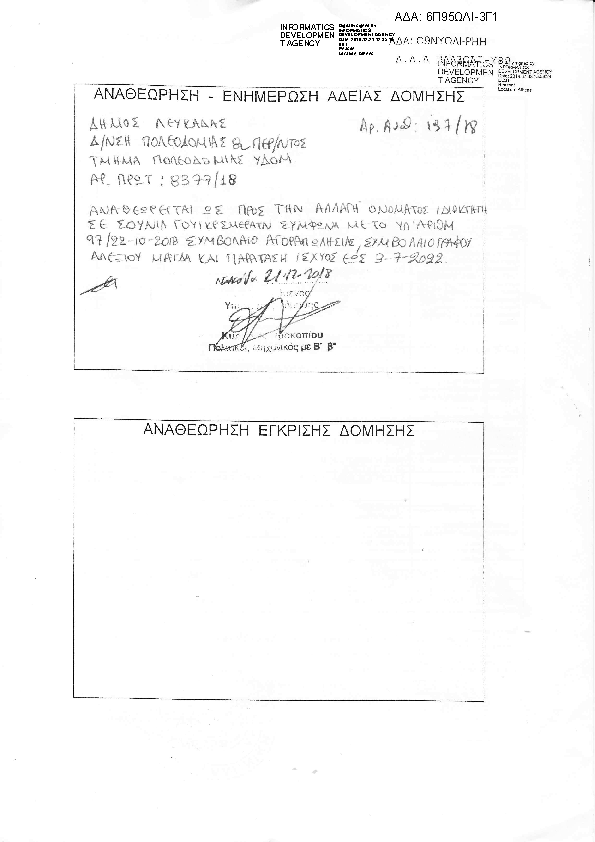 ΑΔΑ: 6Π95ΩΛΙ-3Γ1
INFORMATICS
DEVELOPMEN
T AGENCY
INFORMATICS
DEVELOPMEN
T AGENCY
ΑΝΑΘΕΩΡΗΣΗ - ΕΝΗΜΕΡΩΣΗ ΑΔΕΙΑΣ ΔΟΜΗΣΗΣ
ΔΗΜΟΣ ΛΕΥΚΑΔΑΣ
Αρ. Αναθ: 137/18
Δ/ΝΣΗ ΠΟΛΕΟΔΟΜΙΑΣ & ΠΕΡ/ΝΤΟΣ
ΤΜΗΜΑ ΠΟΛΕΟΔΟΜΙΑΣ ΥΔΟΜ
ΑΡ. ΠΡΩΤ: 8377/18
ΑΝΑΘΕΩΡΕΙΤΑΙ ΩΣ ΠΡΟΣ ΤΗΝ ΑΛΛΑΓΗ ΟΝΟΜΑΤΟΣ ΙΔΙΟΚΤΗΤΗ
ΣΕ ΣΟΥΝΙΛ ΣΥΜΦΩΝΑ ΜΕ ΤΟ ΥΠ'ΑΡΙΘΜ
97/22-10-2018 ΣΥΜΒΟΛΑΙΟ ΑΓΟΡΑΠΩΛΗΣΙΑΣ, ΣΥΜΒΟΛΑΙΟΓΡΑΦΟΥ
ΑΛΕΞΙΟΥ ΜΑΓΔΑ ΚΑΙ ΠΑΡΑΤΑΣΗ ΙΣΧΥΟΣ ΕΩΣ 9-7-2022.
21-12-2018
Πολιτικός Μηχανικός με Β' β'
ΑΝΑΘΕΩΡΗΣΗ ΕΓΚΡΙΣΗΣ ΔΟΜΗΣΗΣ